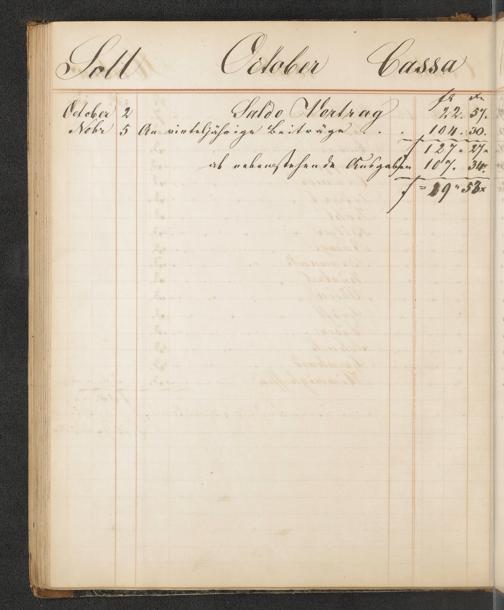 Soll October Cassa
fl xr
October 2 Saldo Vortrag 22. 57.
Nobr 5 An vierteljährige Beiträge . . 104. 30.
f 127. 27.
ab nebenstehende Ausgaben 107. 34.
f = 19 " 53x